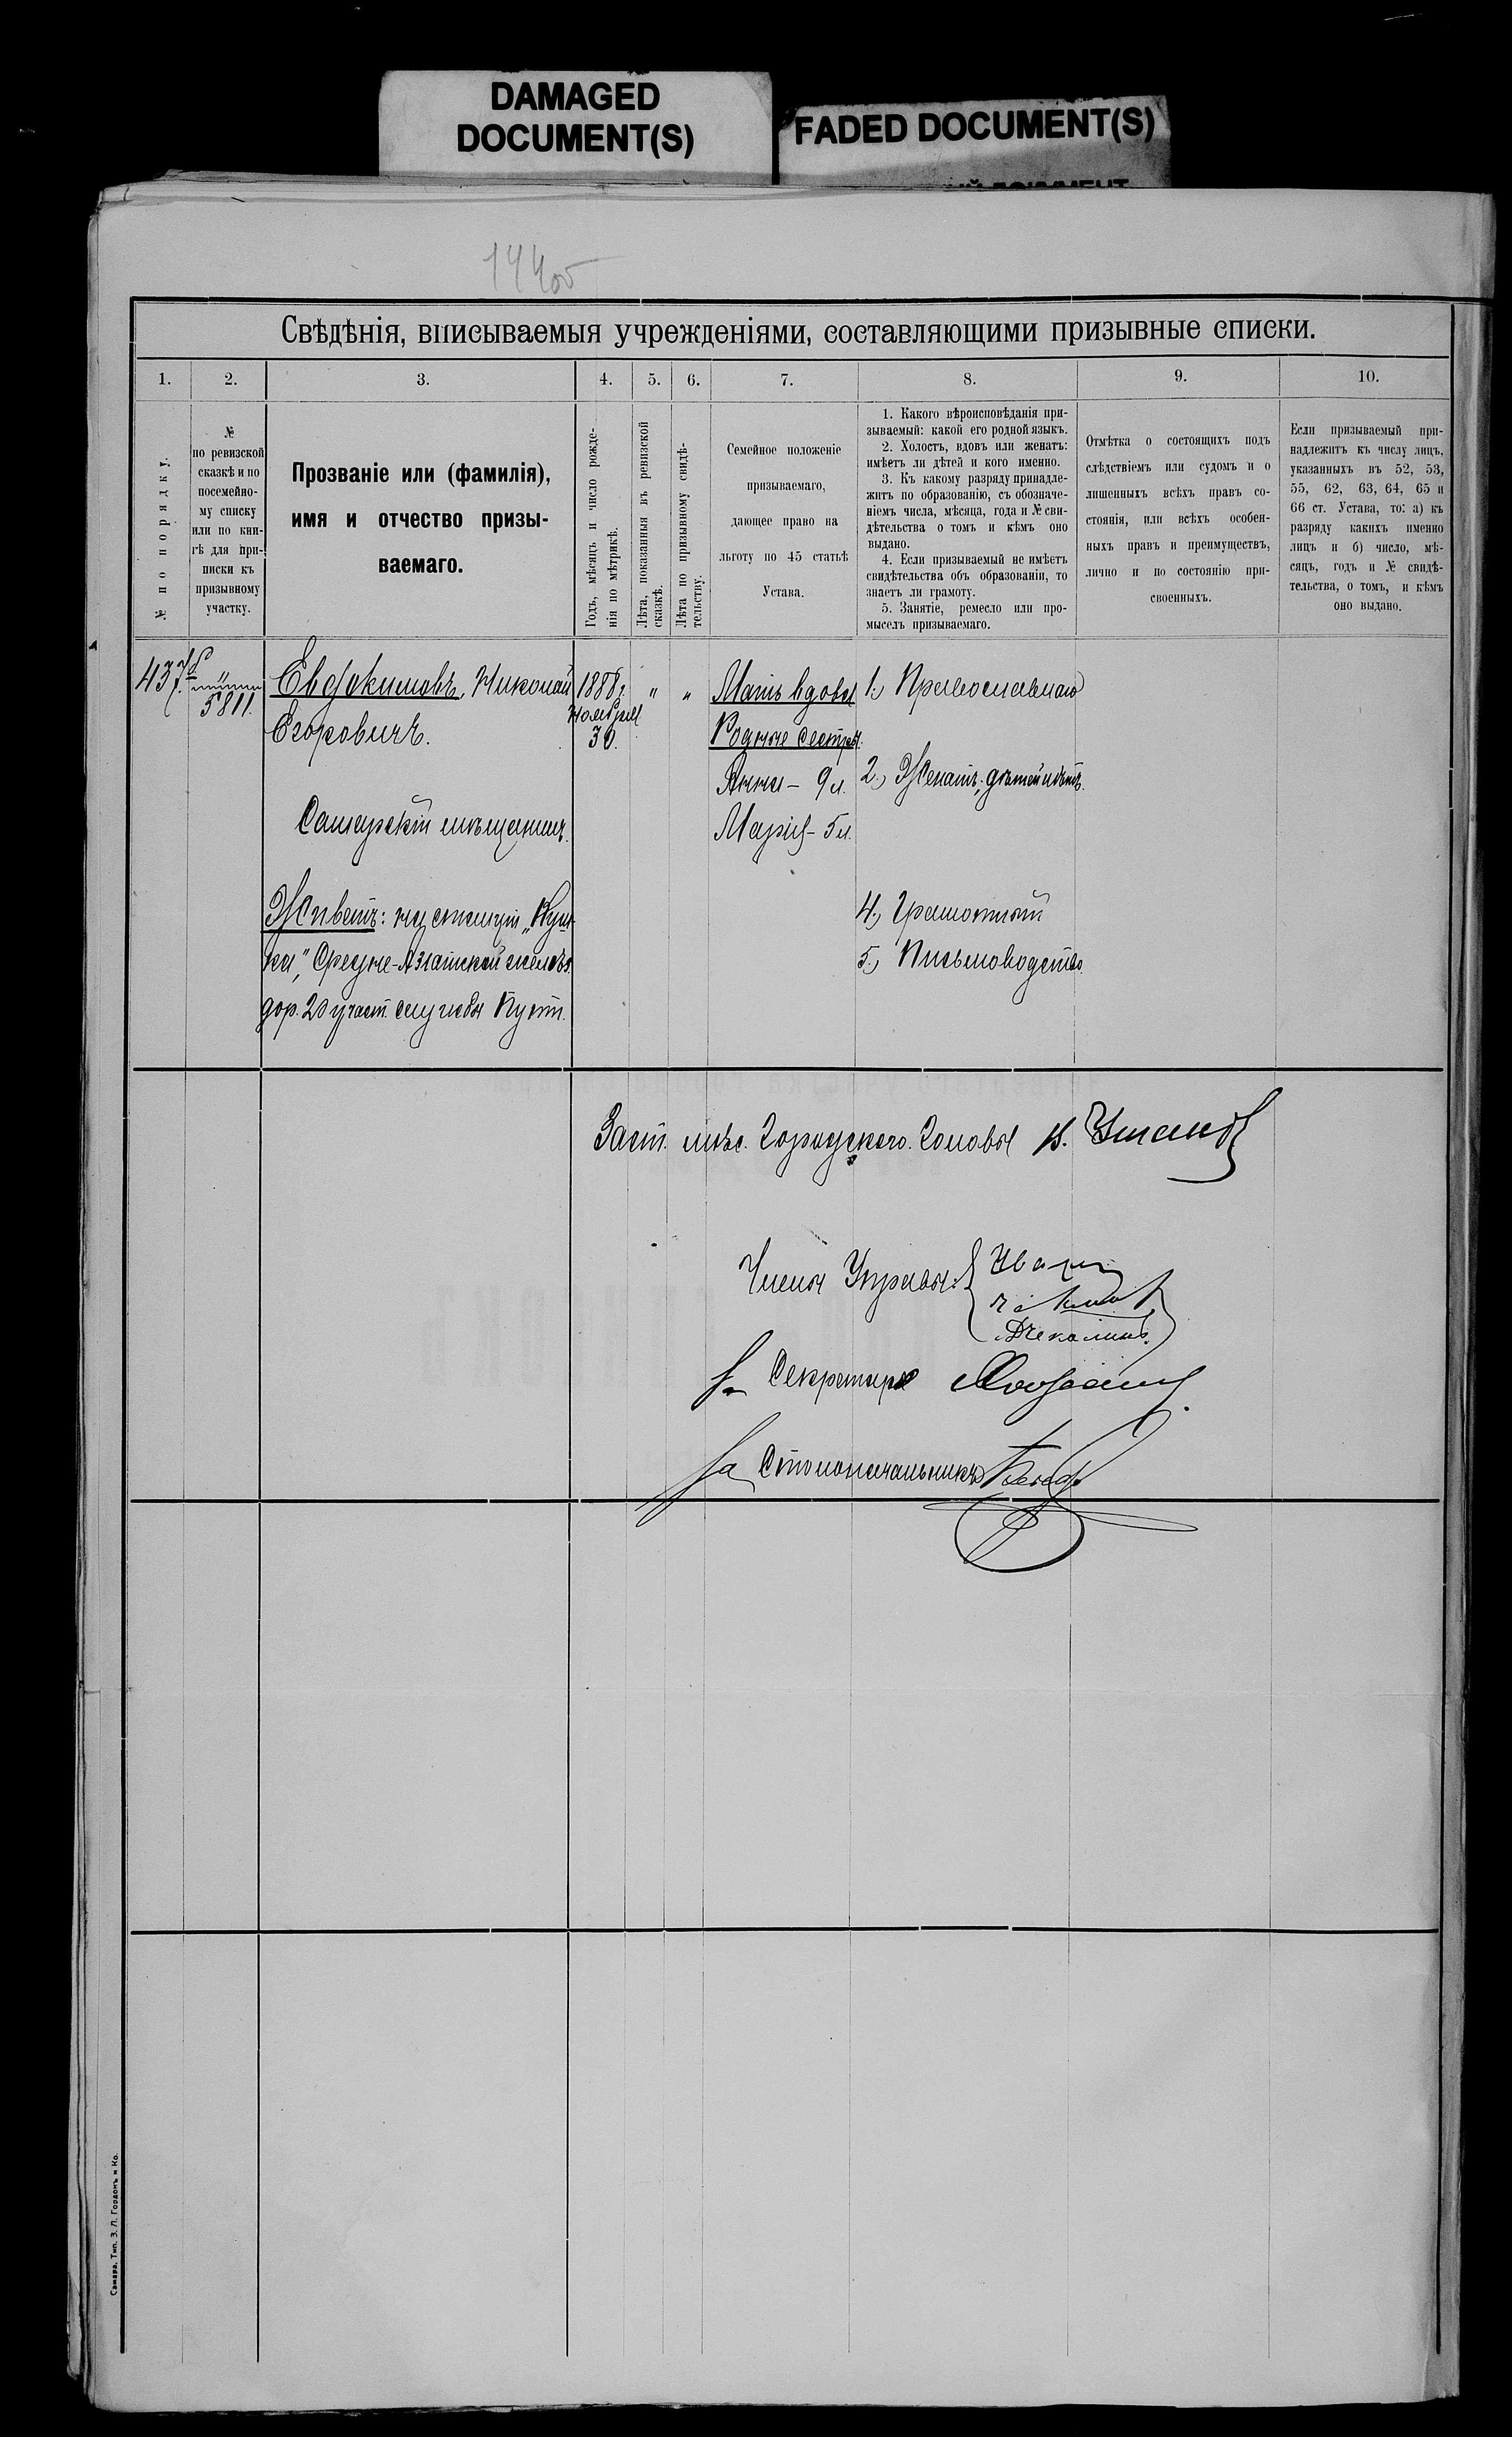 DAMAGED
DOCUMENT(S)
FADED DOCUMENT(S)
Свѣдѣнія, вписываемыя учрежденіями, составляющими призывные списки.
1.
2.
3.
4.
5.
6.
7.
8.
9.
10.
№ по порядку.
№
по ревизской
сказкѣ и по
посемейно-
му списку
или по кни-
гѣ для при-
писки къ
призывному
участку.
Прозваніе или (фамилія),
имя и отчество призы-
ваемаго.
Годъ, мѣсяцъ и число рожде-
нія по мѣтрикѣ.
Лѣта, показанныя въ ревизской
сказкѣ.
Лѣта по призывному свидѣ-
тельству.
Семейное положеніе
призываемаго,
дающее право на
льготу по 45 статьѣ
Устава.
1. Какого вѣроисповѣданія при-
зываемый: какой его родной языкъ.
2. Холостъ, вдовъ или женатъ:
имѣетъ ли дѣтей и кого именно.
3. Къ какому разряду принадле-
житъ по образованію, съ обозначе-
ніемъ числа, мѣсяца, года и № сви-
дѣтельства о томъ и кѣмъ оно
выдано.
4. Если призываемый не имѣетъ
свидѣтельства объ образованіи, то
знаетъ ли грамоту.
5. Занятіе, ремесло или про-
мыселъ призываемаго.
Отмѣтка о состоящихъ подъ
слѣдствіемъ или судомъ и о
лишенныхъ всѣхъ правъ со-
стоянія, или всѣхъ особен-
ныхъ правъ и преимуществъ,
лично и по состоянію при-
своенныхъ.
Если призываемый при-
надлежитъ къ числу лицъ,
указанныхъ въ 52, 53,
55, 62, 63, 64, 65 и
66 ст. Устава, то: а) къ
разряду какихъ именно
лицъ и б) число, мѣ-
сяцъ, годъ и № свидѣ-
тельства, о томъ, и кѣмъ
оно выдано.
437.
5811.
Евдокимовъ, Николай
Егоровичъ.
Самарскій мѣщанинъ.
Живетъ: на станціи „Куш-
ка", Средне-Азіатской желѣз.
дор. 20 участ. службы Пути.
1888 г.
Ноября
30.
"
"
Мать вдова
Родныя сестры:
Анна - 9 л.
Марія - 5 л.
1.) Православнаго
2.) Женатъ, дѣтей нѣтъ.
4.) Грамотный
5.) Письмоводство.
Заст. мѣс. Городского Головы
Члены Управы:
Чекалинъ.
За Секретаря
За Столоначальника
Самара, Тип. З. Л. Гордонъ и Ко.